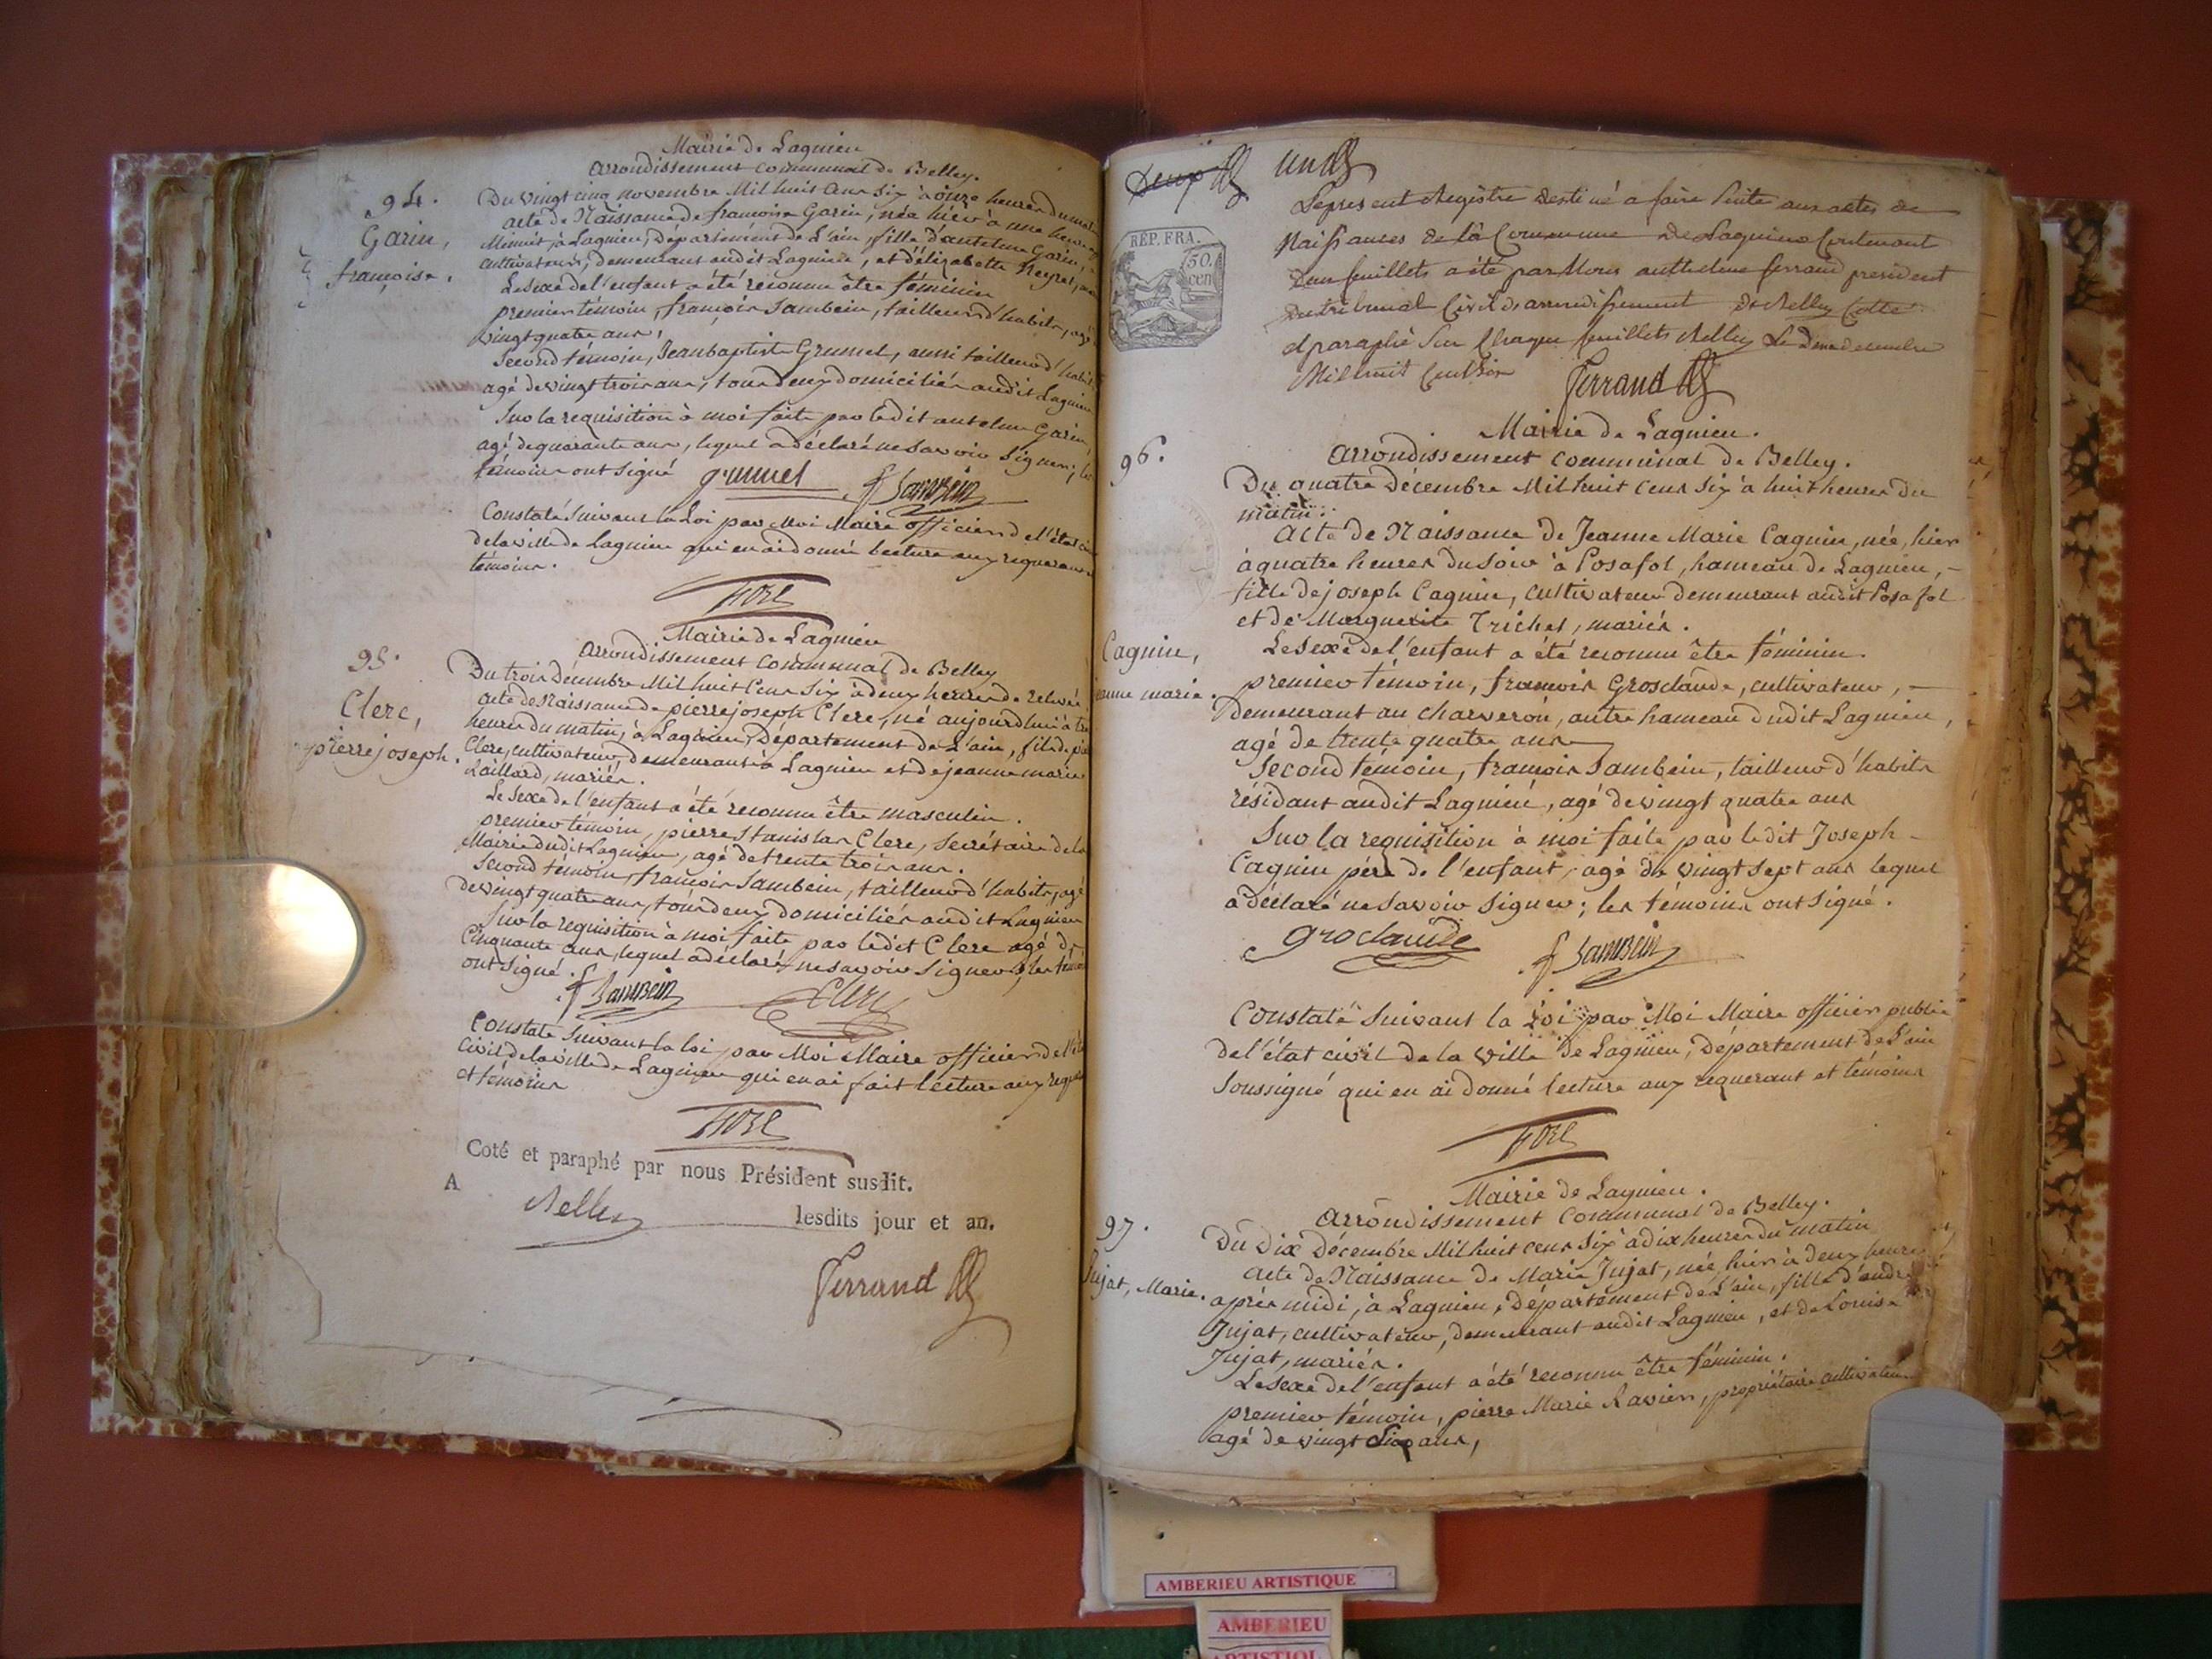 Mairie de Lagnieu
arrondissement communal de Belley.
94.
Garin,
françoise.
Du vingt cinq novembre Mil huit Cens Six à onze heures du matin
acte de Naissance de françoise Garin, née hier à une heure
Minuit, à Lagnieu, Département de L'ain, fille d'antelme Garin,
cultivateur, demeurant audit Lagnieu, et d'élizabette Neyret,
Le Sexe de l'enfant a été reconnu être féminin
premier témoin, françois Sambein, tailleur d'habits, agé
vingt quatre ans,
Second témoin, Jean baptiste Grumel, aussi tailleur d'habits
agé de vingt trois ans, tous deux domiciliés audit Lagnieu
Sur la requisition à moi faite par ledit antelme Garin
agé de quarante ans, lequel a déclaré ne Savoir Signer; les
témoins ont signé grumel f. Sambein
Constaté Suivant la Loi par Moi Maire officier de l'état
de la ville de Lagnieu qui en ai donné lecture aux requerant
témoins.
Mairie de Lagnieu
arrondissement communal de Belley
95.
Clerc,
pierre joseph.
Du trois Décembre Mil huit Cens Six à deux heures de relevée
acte de Naissance de pierre joseph Clerc, né aujourdhui à
heures du matin, à Lagnieu, Département de L'ain, fils de
Clerc, cultivateur, demeurant à Lagnieu et de jeanne marie
Gaillard, mariés.
Le Sexe de l'enfant a été reconnu être masculin.
premier témoin, pierre Stanislas Clerc, Secrétaire de la
Mairie dudit Lagnieu, agé de trente trois ans.
Second témoin, françois Sambein, tailleur d'habits, agé
de vingt quatre ans, tous deux domiciliés audit Lagnieu
Sur la requisition à moi faite par ledit Clerc agé de
Cinquante ans, lequel a déclaré ne savoir Signer, les témoins
ont Signé.
f. Sambein Clerc
Constaté Suivant la loi par Moi Maire officier de l'état
Civil de la ville de Lagnieu qui en ai fait lecture aux
et témoins
Coté et paraphé par nous Président susdit.
A Belley lesdits jour et an.
Ferrand
Deux un
RÉP. FRA.
50.
cen
Le present Registre destiné a faire Suite aux actes de
Naissances de la Commune de Lagnieu Contenant
Deux feuillets a été par Nous anthelme ferrand president
du tribunal Civil d'arrondissement de Belley Cotté
et paraphé Sur Chaque feuillets Belley Le Deux decembre
Mil huit Cent Six
Ferrand
Mairie de Lagnieu.
arrondissement communal de Belley.
96.
Cagnin,
jeanne marie.
Du quatre Décembre Mil huit Cens Six à huit heures du
matin.
acte de Naissance de Jeanne Marie Cagnin, née, hier
à quatre heures du Soir à Posafol, hameau de Lagnieu,
fille de joseph Cagnin, cultivateur demeurant audit Posafol
et de Marguerite Trichet, mariés.
Le Sexe de l'enfant a été reconnu être féminin.
premier témoin, françois Grosclaude, cultivateur,
demeurant au charveron, autre hameau dudit Lagnieu,
agé de trente quatre ans
Second témoin, françois Sambein, tailleur d'habits
résidant audit Lagnieu, agé de vingt quatre ans
Sur la requisition à moi faite par ledit Joseph
Cagnin père de l'enfant, agé de vingt sept ans lequel
a déclaré ne Savoir Signer; les témoins ont Signé.
Groclaude f. Sambein
Constaté Suivant la Loi par Moi Maire officier public
de l'état civil de la ville de Lagnieu, Département de L'ain
Soussigné qui en ai donné lecture aux requerant et témoins
Mairie de Lagnieu.
arrondissement Communal de Belley.
97.
Jujat, Marie.
Du Dix Décembre Mil huit cens Six à dix heures du matin
acte de Naissance de Marie Jujat, née, hier à deux heures
après midi, à Lagnieu, Département de L'ain, fille d'andré
Jujat, cultivateur, demeurant audit Lagnieu, et de Louise
Jujat, mariés.
Le Sexe de l'enfant a été reconnu être féminin.
premier témoin, pierre Marie Ravier, propriétaire cultivateur
agé de vingt Six ans,
AMBERIEU ARTISTIQUE
AMBERIEU